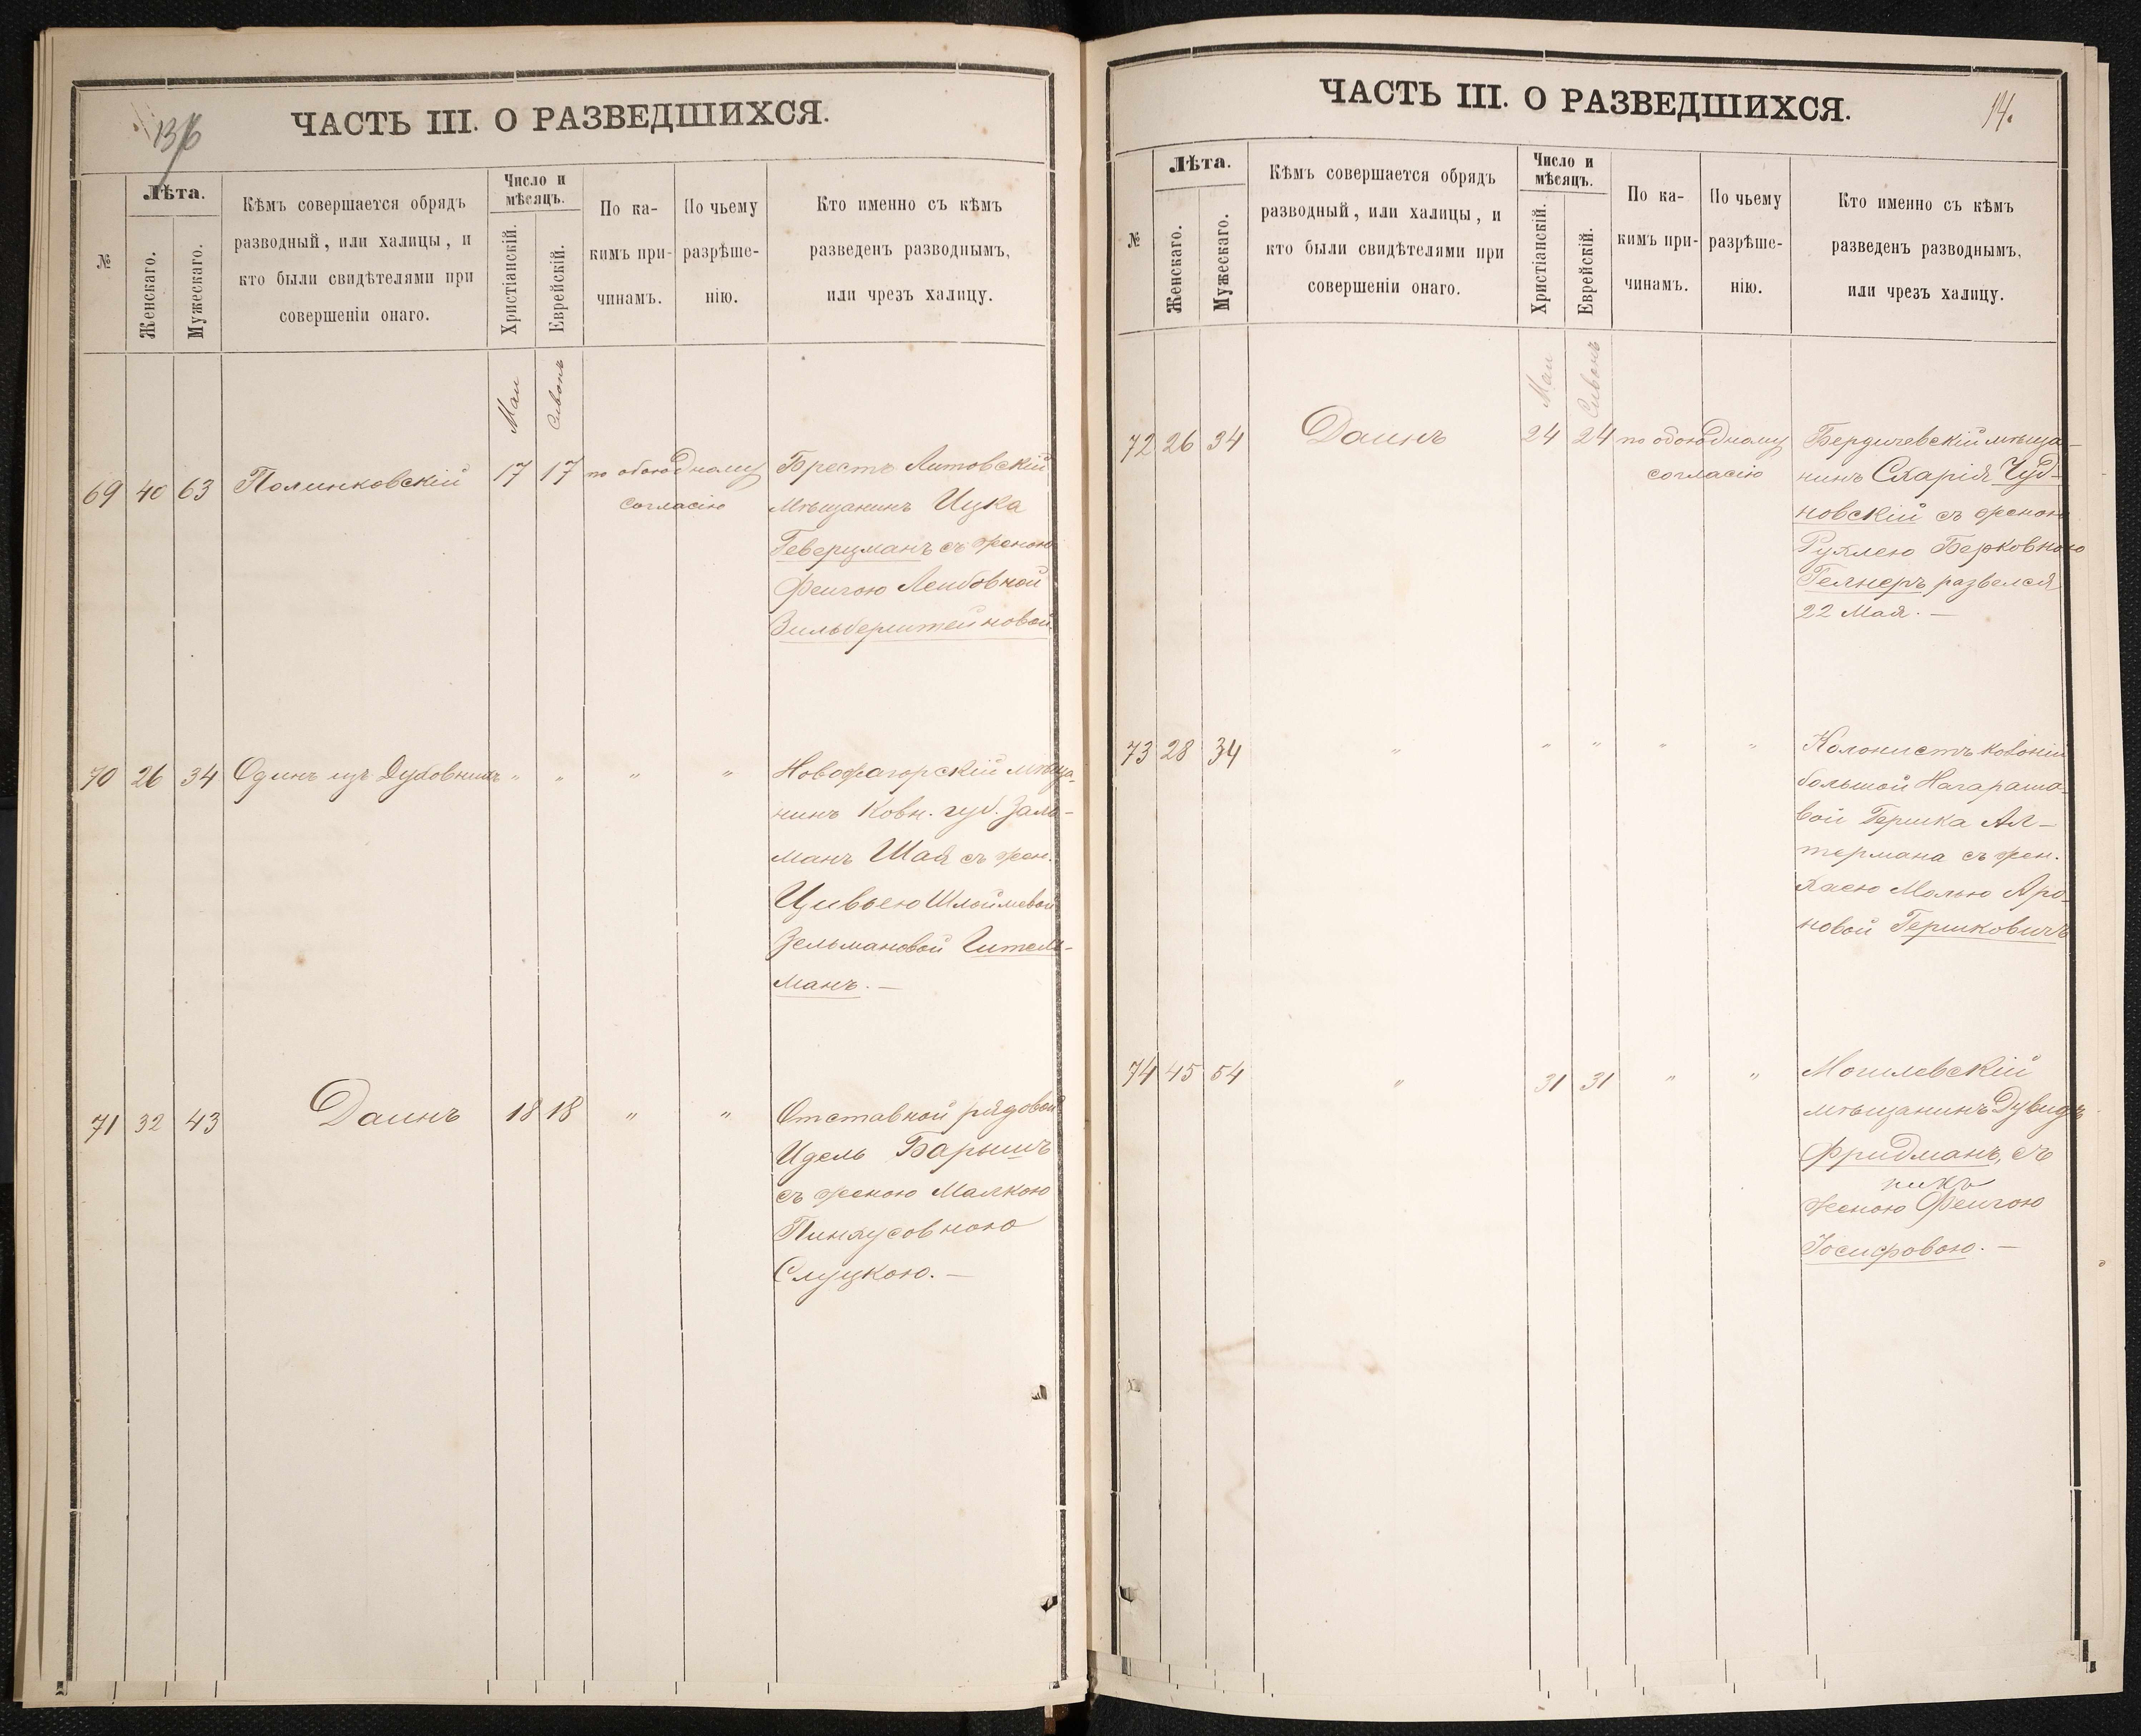 136
ЧАСТЬ III. О РАЗВЕДШИХСЯ.
№
Лѣта.
Женскаго.
Мужескаго.
Кѣмъ совершается обрядъ
разводный, или халицы, и
кто были свидѣтелями при
совершеніи онаго.
Число и
мѣсяцъ.
Христіанскій.
Еврейскій.
По ка-
кимъ при-
чинамъ.
По чьему
разрѣше-
нію.
Кто именно съ кѣмъ
разведенъ разводнымъ,
или чрезъ халицу.
Маи
Сивонъ
69 40 63 Полинковскій 17 17 по обоюдному
согласію
Брестъ Литовскій
мѣщанинъ Ицка
Геверцманъ съ женою
Фейгою Лейбовной
Зильберштейновой
70 26 34 Одинъ изъ Духовныхъ " " " "
Новожагорскій мѣща-
нинъ Ковн. губ. Заль-
манъ Шая съ жен.
Цивьею Шлоймовой
Зельмановой Гитель-
манъ. —
71 32 43 Даинъ 18 18 " "
Отставной рядовой
Идель Барышъ
съ женою Малкою
Пинхусовною
Слуцкою. —
ЧАСТЬ III. О РАЗВЕДШИХСЯ.
14.
№
Лѣта.
Женскаго.
Мужескаго.
Кѣмъ совершается обрядъ
разводный, или халицы, и
кто были свидѣтелями при
совершеніи онаго.
Число и
мѣсяцъ.
Христіанскій.
Еврейскій.
По ка-
кимъ при-
чинамъ.
По чьему
разрѣше-
нію.
Кто именно съ кѣмъ
разведенъ разводнымъ,
или чрезъ халицу.
Маи
Сивонъ
72 26 34 Даинъ 24 24 по обоюдному
согласію
Бердичевскій мѣща-
нинъ Схарія Чуд-
новскій съ женою
Рухлею Берковною
Гелнеръ развелся
22 Мая. —
73 28 34 " " " " "
Колонистъ колоніи
большой
Гершка Ал-
термана съ жен.
Хаею Молью Аро-
новой Гершковичъ
74 45 54 " 31 31 " "
Могилевскій
мѣщанинъ Дувидъ
Фридманъ, съ
женою Фейгою
Іосифовою. —